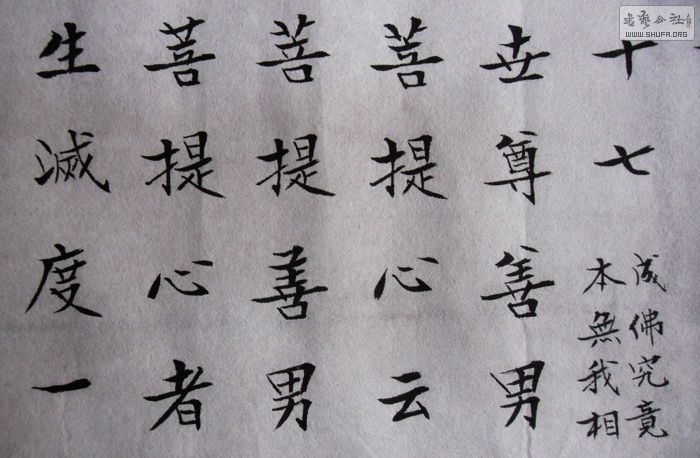 十七
成佛究竟
本無我相
世尊善男
菩提心云
菩提善男
菩提心者
生滅度一
书艺公社
WWW.SHUFA.ORG